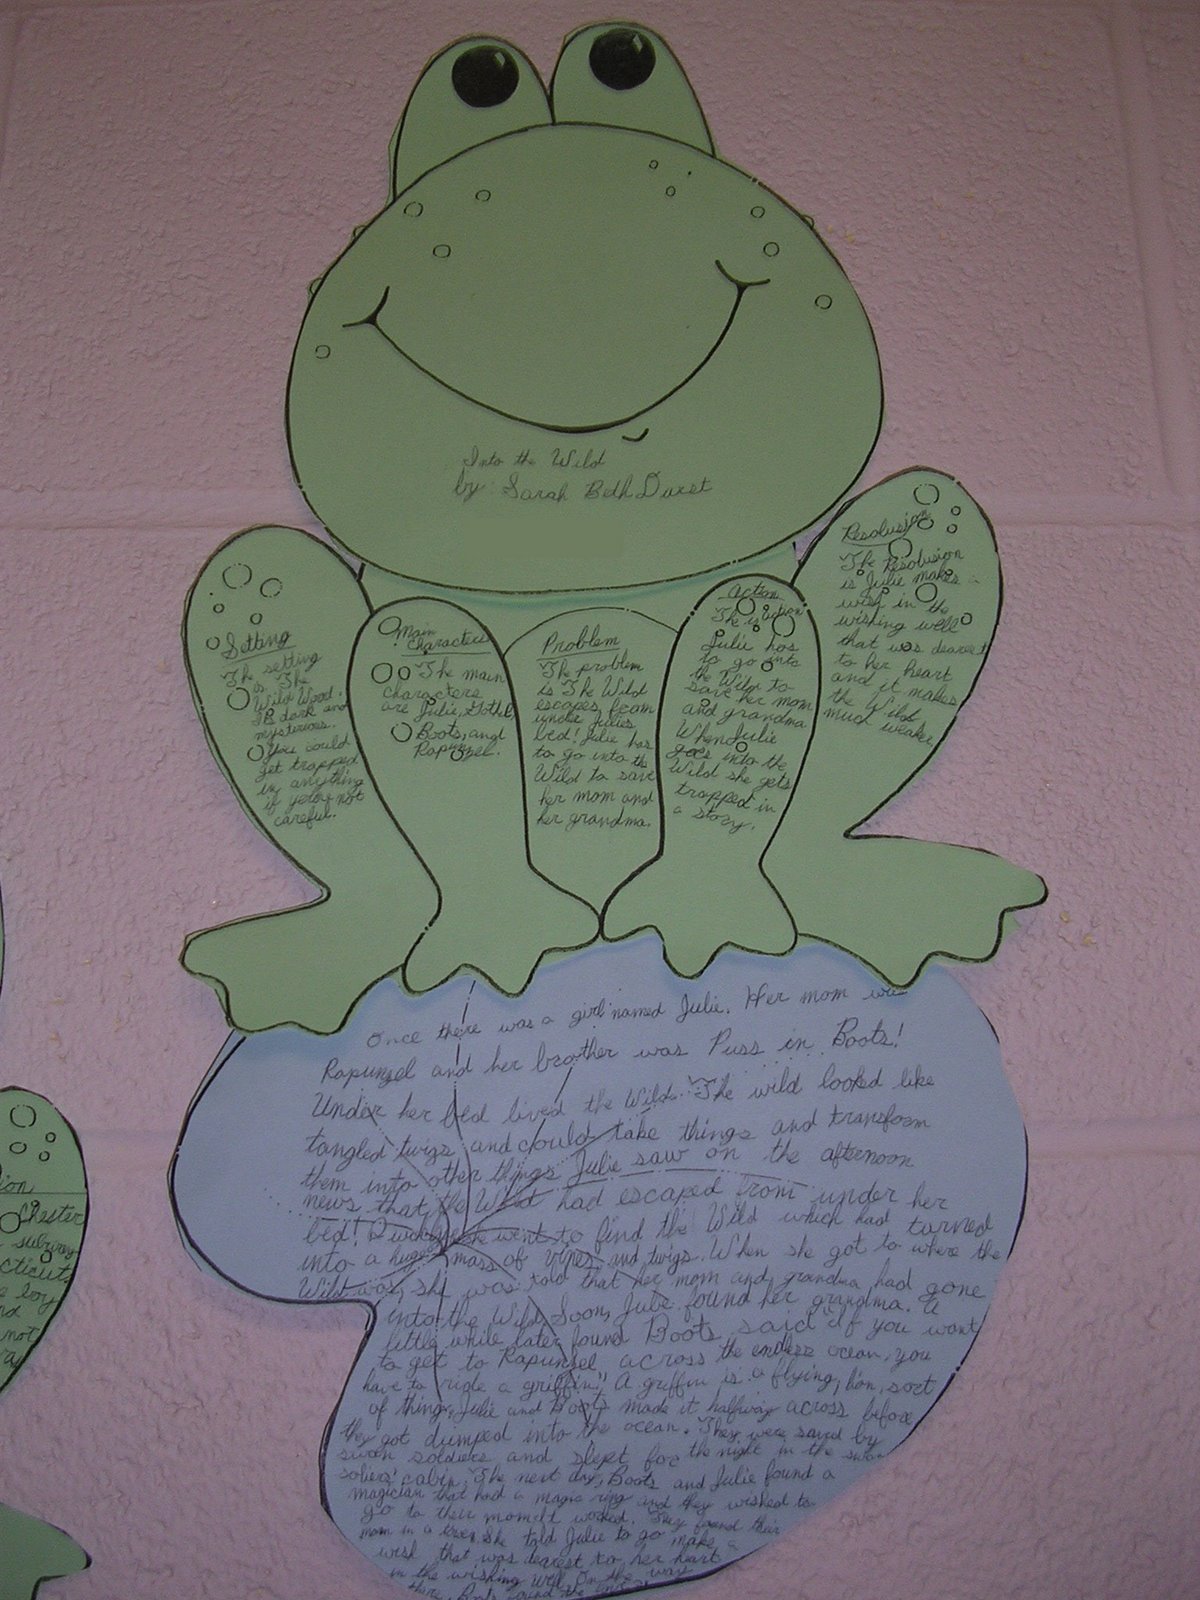 Into the Wild
by: Sarah Beth Durst
Setting
The setting
is The
Wild Wood.
It's dark and
mysterious.
You could
get trapped
in anything
if your not
careful.
Main
Characters
The main
characters
are Julie, Gothel,
Boots, and
Rapunzel.
Problem
The problem
is The Wild
escapes from
under Julies
bed! Julie has
to go into the
Wild to save
her mom and
her grandma.
Action
The action
Julie has
to go into
the Wild to
save her mom
and grandma
When Julie
goes into the
Wild she gets
trapped in
a story.
Resolusion
The Resolusion
is Julie makes a
wish in the
wishing well
that was dearest
to her heart
and it makes
the Wild
much weaker
Once there was a girl named Julie. Her mom was
Rapunzel and her brother was Puss in Boots!
Under her bed lived the Wild. The wild looked like
tangled twigs and could take things and transform
them into other things Julie saw on the afternoon
news that the Wild had escaped from under her
bed! she went to find the Wild which had turned
into a huge mass of vines and twigs. When she got to where the
Wild was, she was told that her mom and grandma had gone
into the Wild. Soon, Julie found her grandma. A
little while later found Boots said "if you want
to get to Rapunzel, across the endless ocean, you
have to ride a griffin." A griffin is a flying, lion, sort
of thing. Julie and Boots made it halfway across before
they got dumped into the ocean. They were saved by
swan soldiers and slept for the night in the swan
soliers' cabin. The next day, Boots and Julie found a
magician that had a magic ring and they wished to
go to their mom. It worked. They found their
mom in a She told Julie to go make a
wish that was dearest to her heart
in the wishing well. On the way
there, Boots found the
ion
Chester
subway
cticut,
e boy
nd
not